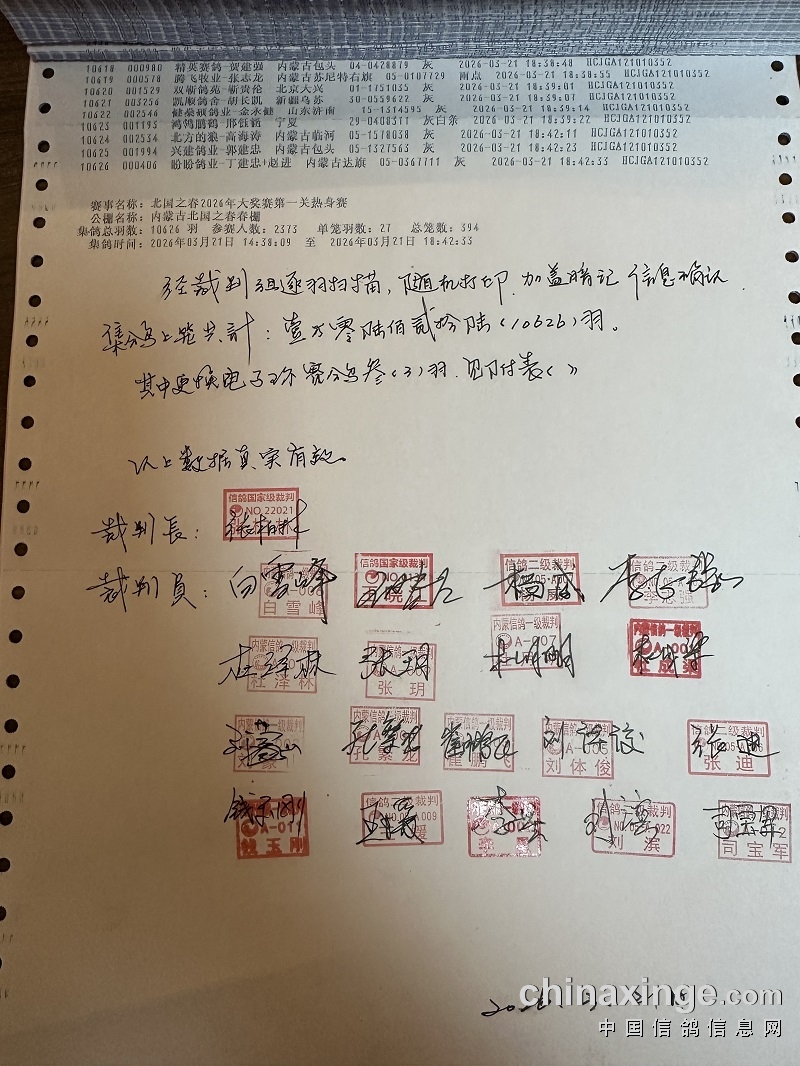 10618 000980 精英赛鸽-贺建强 内蒙古包头 04-0428879 灰 2026-03-21 18:38:48 HCJGA121010352
10619 000578 腾飞牧业-张志龙 内蒙古苏尼特右旗 05-0107729 雨点 2026-03-21 18:38:55 HCJGA121010352
10620 001529 双靳鸽苑-靳贵伦 北京大兴 01-1751035 灰 2026-03-21 18:39:01 HCJGA121010352
10621 003256 凯顺鸽舍-胡长凯 新疆乌苏 30-0559622 灰 2026-03-21 18:39:07 HCJGA121010352
10622 002546 健桑硕鸽业-金永健 山东济南 15-1314595 灰 2026-03-21 18:39:14 HCJGA121010352
10623 001193 鸿鹄腾鹤-邢钰韬 宁夏 29-0408311 灰白条 2026-03-21 18:39:22 HCJGA121010352
10624 002534 北方的狼-高海涛 内蒙古临河 05-1578038 灰 2026-03-21 18:42:11 HCJGA121010352
10625 001994 兴建鸽业-郭建忠 内蒙古包头 05-1327563 灰 2026-03-21 18:42:24 HCJGA121010352
10626 000406 盼盼鸽业-丁建忠+赵进 内蒙古达旗 05-0367711 灰 2026-03-21 18:42:33 HCJGA121010352
赛事名称：北国之春2026年大奖赛第一关热身赛
公棚名称：内蒙古北国之春春棚
集鸽总羽数：10626 羽 参赛人数：2373 单笼羽数：27 总笼数：394
集鸽时间：2026年03月21日 14:38:09 至 2026年03月21日 18:42:33
经裁判组逐羽扫描，随机打印，加盖暗记 信息确认
集鸽上笼共计：壹万零陆佰贰拾陆（10626）羽。
其中更换电子环赛鸽叁（3）羽，见附表（ ）
以上数据真实有效。
裁判長：
信鸽国家级裁判
NO 22021
裁判員：白雪峰
白雪峰
信鸽国家级裁判
信鸽二级裁判
李志强
杜泽林 张玥
内蒙信鸽一级裁判
杜泽林
张玥
A-007
刘体俊
张迪
钱玉刚
A-009
刘滨
司宝军
chinaxinge.com
中国信鸽信息网